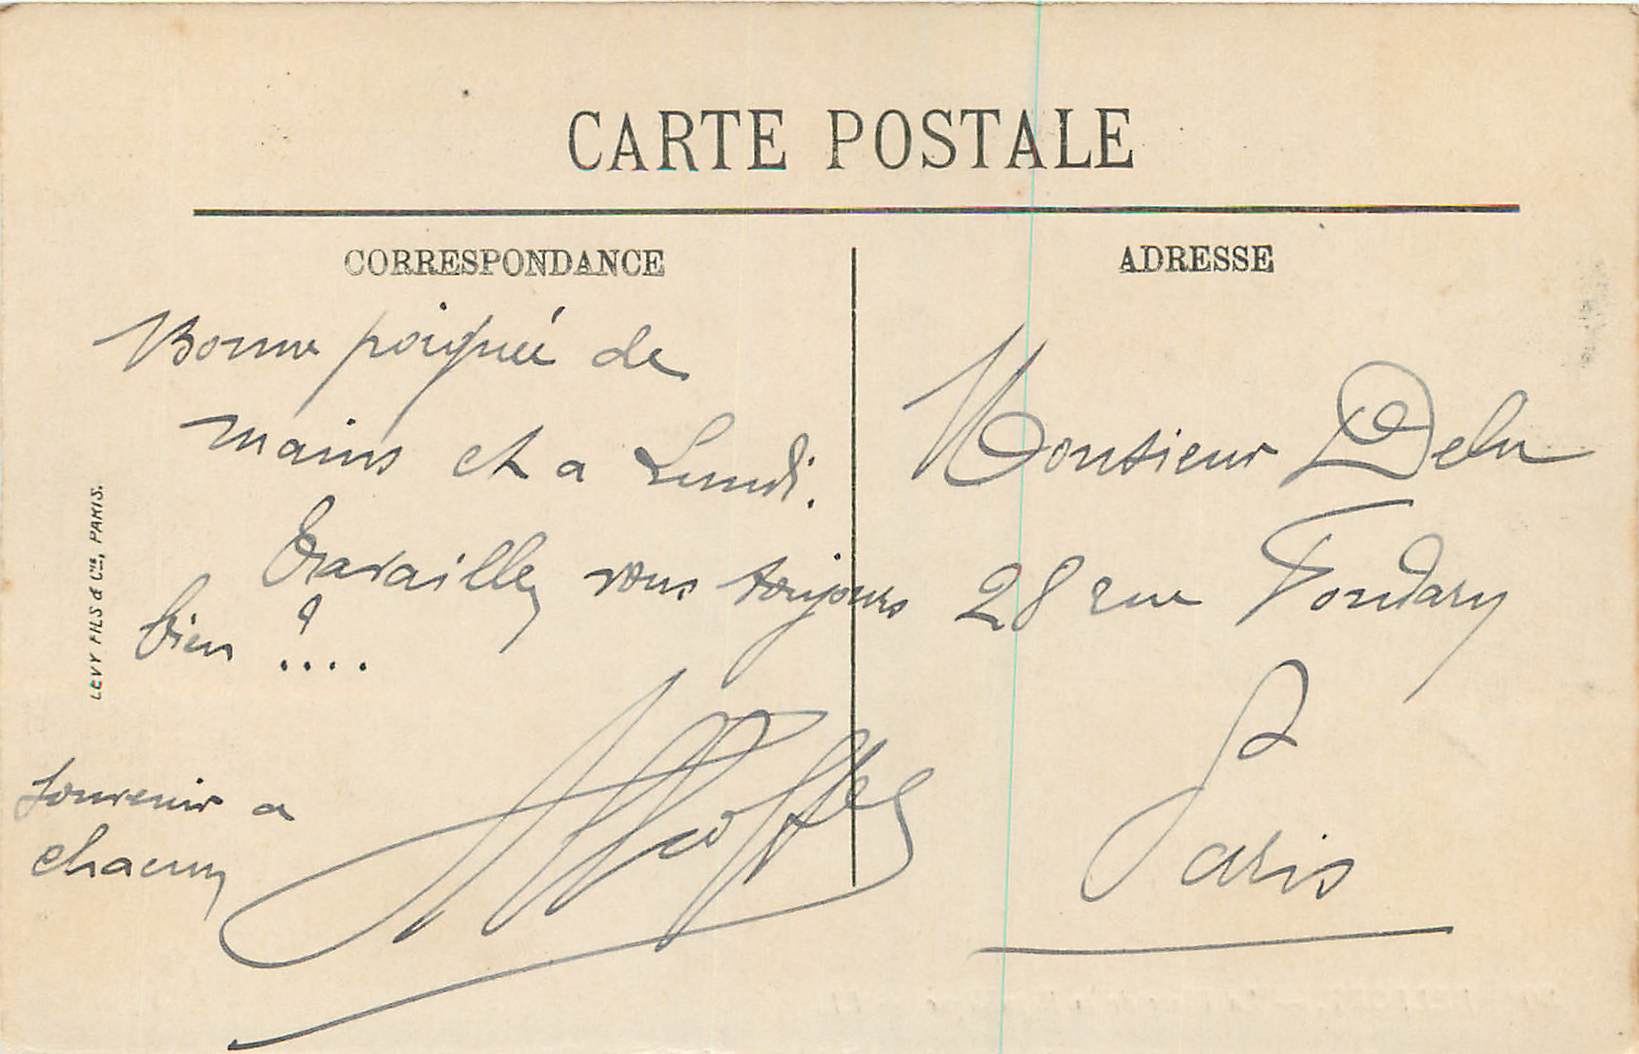 CARTE POSTALE
CORRESPONDANCE
Bonne poignée de
mains et a Lundi.
Travaillez vous toujours
bien ? ....
Souvenir a
chacun
ADRESSE
Monsieur
28 rue Fondary
Paris
LEVY FILS & Cie, PARIS.